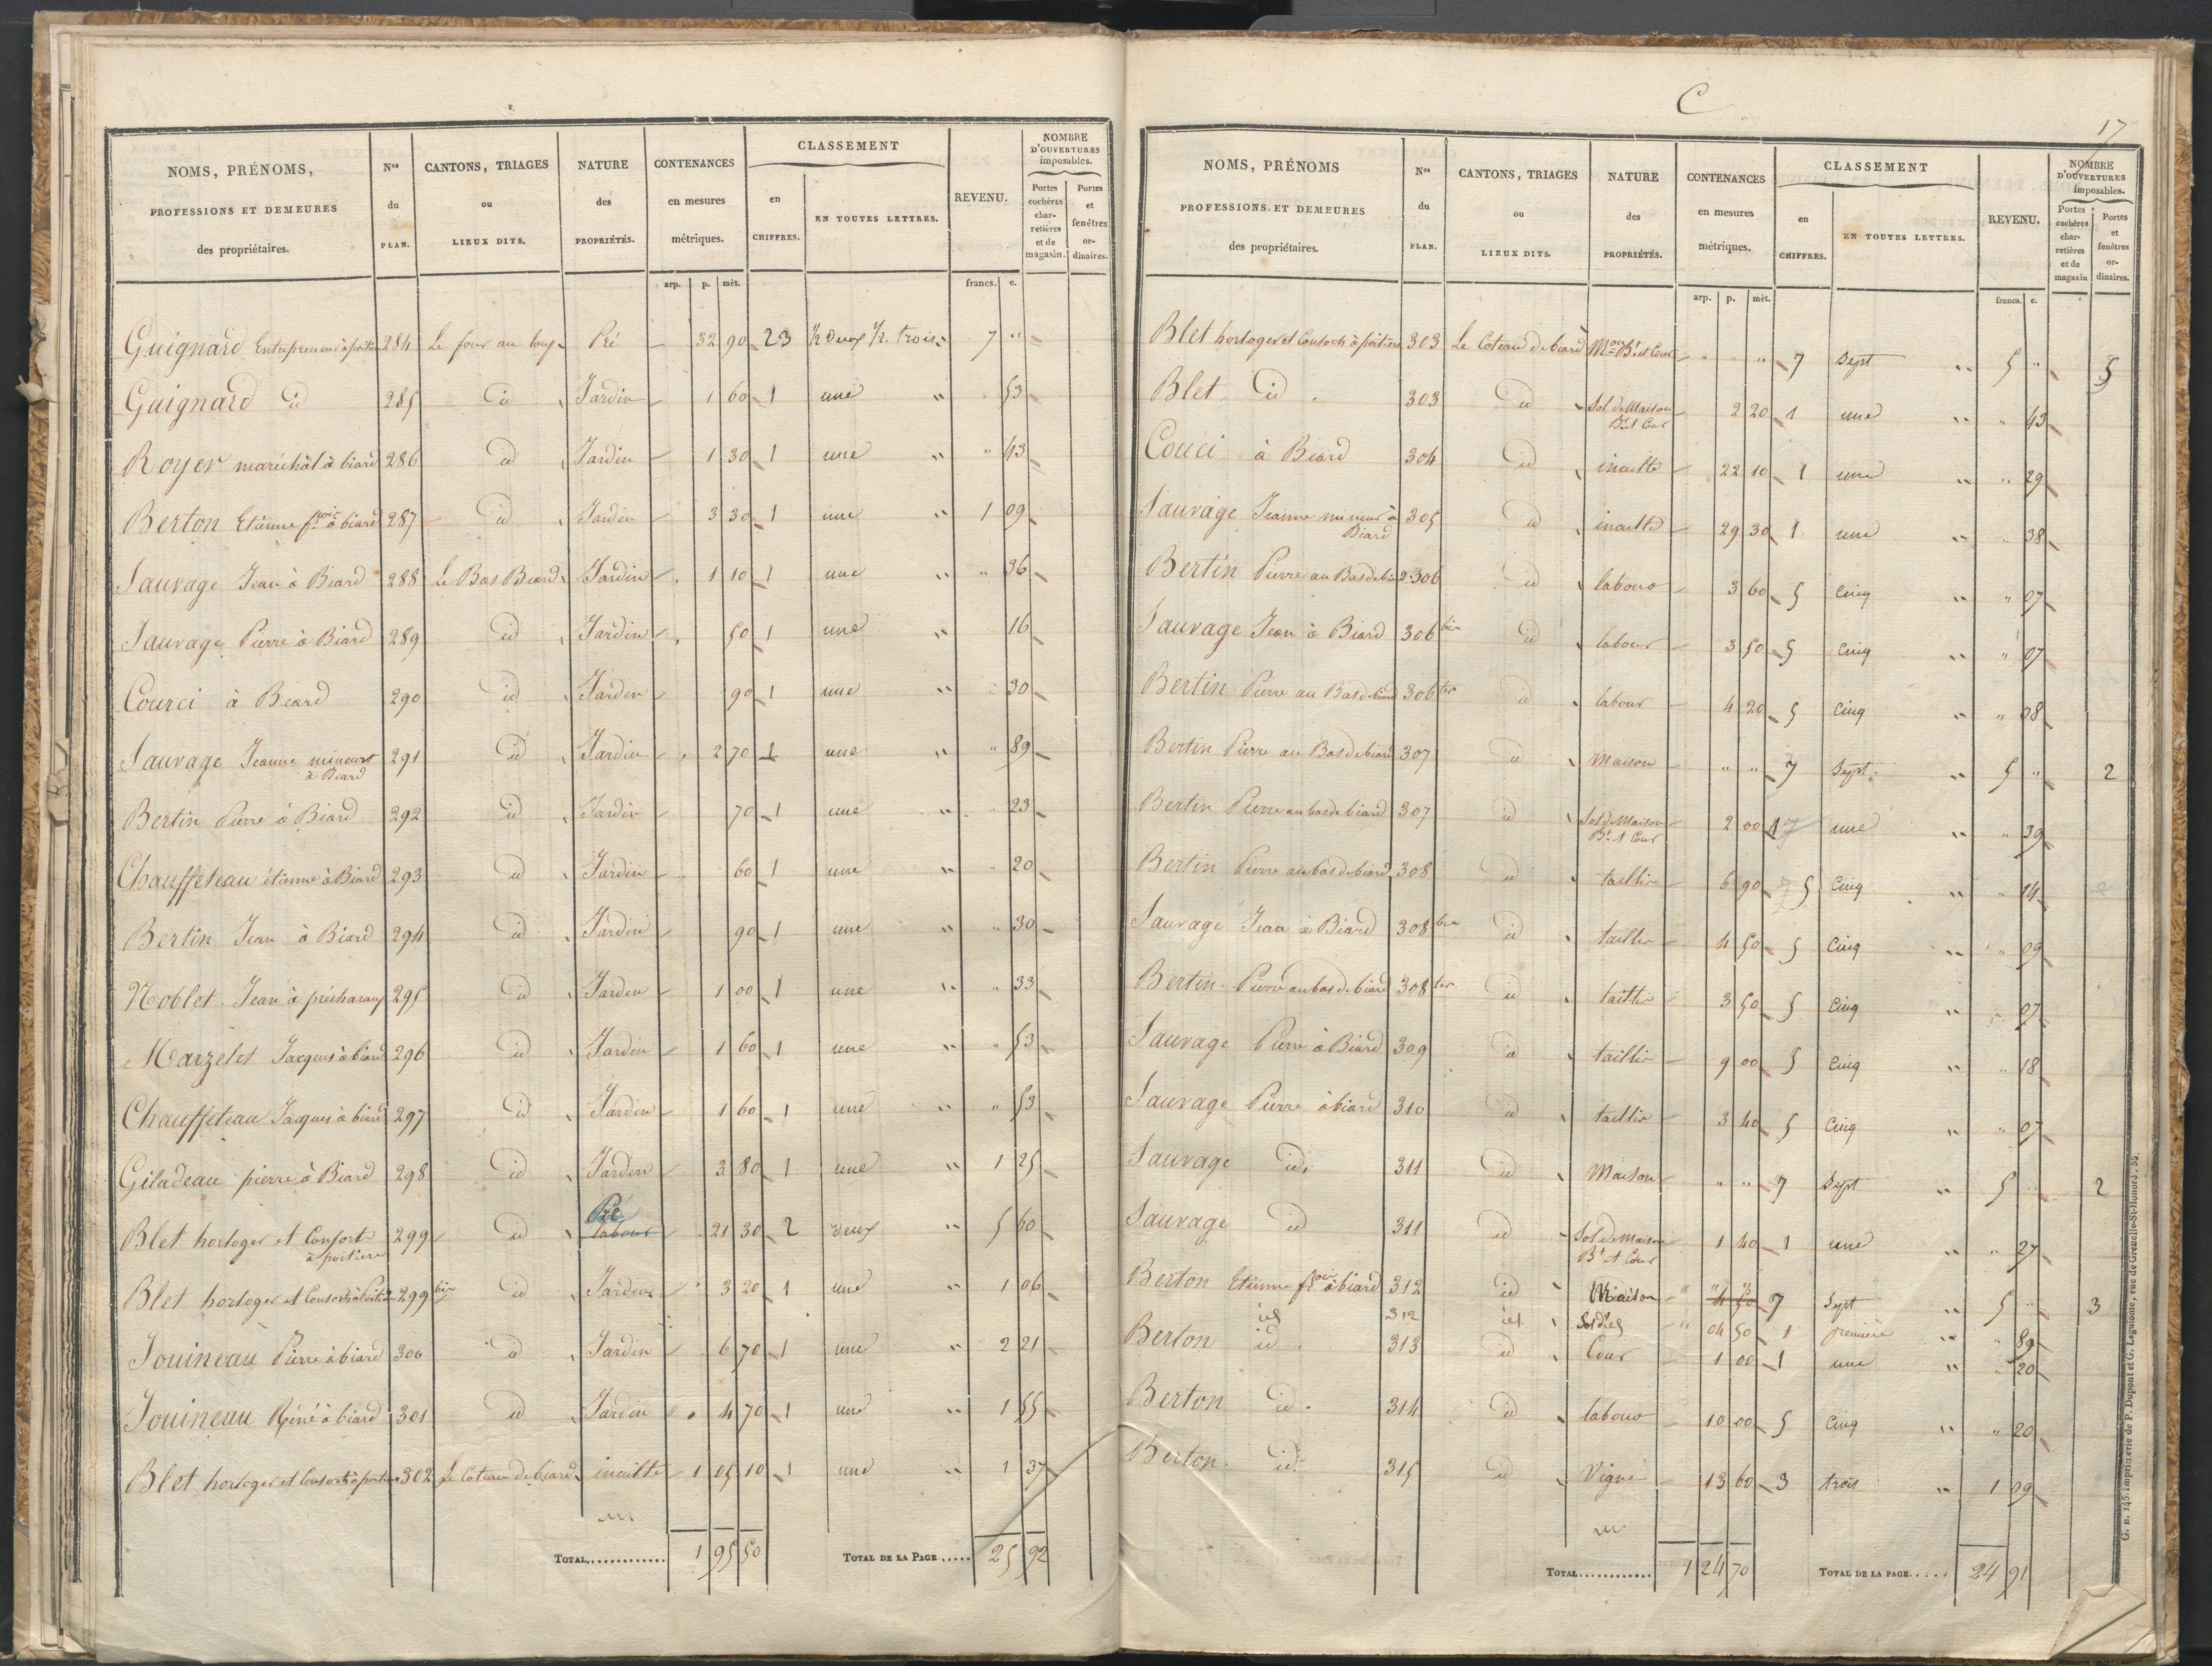 NOMS, PRÉNOMS, PROFESSIONS ET DEMEURES des propriétaires. Nos du PLAN. CANTONS, TRIAGES ou LIEUX DITS. NATURE des PROPRIÉTÉS. CONTENANCES en mesures métriques. CLASSEMENT en CHIFFRES. EN TOUTES LETTRES. REVENU. NOMBRE D'OUVERTURES imposables. Portes cochères charretières et de magasin. Portes et fenêtres ordinaires.
arp. p. mèt. francs. c.
Guignard Entrepreneur à poitiers 284 Le four au loup Pré 32 90 23 1/2 deux 1/2 trois 7 "
Guignard id 285 id Jardin 1 60 1 une " 53
Royer maréchal à biard 286 id Jardin 1 30 1 une " " 43
Berton Etienne fs à biard 287 id Jardin 3 30 1 une " 1 09
Sauvage Jean à Biard 288 Le Bas Biard Jardin 1 10 1 une " " 36
Sauvage Pierre à Biard 289 id Jardin 50 1 une " 16
Courci à Biard 290 id Jardin 90 1 une " " 30
Sauvage Jeanne mineure à Biard 291 id Jardin 2 70 1 une " " 89
Bertin Pierre à Biard 292 id Jardin 70 1 une " 23
Chauffeteau étienne à Biard 293 id Jardin 60 1 une " 20
Bertin Jean à Biard 294 id Jardin 90 1 une " " 30
Noblet Jean à 295 id Jardin 1 00 1 une " " 33
Marzelet Jacques à biard 296 id Jardin 1 60 1 une " " 53
Chauffeteau Jacques à biard 297 id Jardin 1 60 1 une " " 53
Giladeau pierre à Biard 298 id Jardin 3 80 1 une " 1 25
Blet horloger et Consort à poitiers 299 id labour Pré 21 30 2 deux " 5 60
Blet horloger et Consorts à Poitiers 299 bis id Jardin 3 20 1 une " 1 06
Jouineau Pierre à biard 300 id Jardin 6 70 1 une " 2 21
Jouineau Réné à biard 301 id Jardin 4 70 1 une " 1 55
Blet horloger et Consorts à poitiers 302 Le Coteau de biard inculte 1 05 10 1 une " 1 37
TOTAL............ 1 95 50 TOTAL DE LA PAGE..... 25 92
C
17
NOMS, PRÉNOMS PROFESSIONS ET DEMEURES des propriétaires. Nos du PLAN. CANTONS, TRIAGES ou LIEUX DITS. NATURE des PROPRIÉTÉS. CONTENANCES en mesures métriques. CLASSEMENT en CHIFFRES. EN TOUTES LETTRES. REVENU. NOMBRE D'OUVERTURES imposables. Portes cochères charretières et de magasin Portes et fenêtres ordinaires.
arp. p. mèt. francs. c.
Blet horloger et Consorts à poitiers 303 Le Coteau de biard Mon Bt et Cour " " " 7 Sept " 5 " 5
Blet id 303 id Sol de Maison Bt et Cour 2 20 1 une " " 43
Couci à Biard 304 id inculte 22 10 1 une " " 29
Sauvage Jeanne mineur à Biard 305 id inculte 29 30 1 une " " 38
Bertin Pierre au Bas de biard 306 id labour 3 60 5 Cinq " " 07
Sauvage Jean à Biard 306 bis id labour 3 50 5 Cinq " " 07
Bertin Pierre au Bas de biard 306 ter id labour 4 20 5 Cinq " " 08
Bertin Pierre au Bas de biard 307 id Maison " " 7 Sept " 5 " 2
Bertin Pierre au bas de biard 307 id Sol de Maison Bt et Cour 2 00 1 une " " 39
Bertin Pierre au bas de biard 308 id taillis 6 90 5 Cinq " 14
Sauvage Jean à Biard 308 bis id taillis 4 50 5 Cinq " " 09
Bertin Pierre au bas de biard 308 ter id taillis 3 50 5 Cinq " " 07
Sauvage Pierre à Biard 309 id taillis 9 00 5 Cinq " " 18
Sauvage Pierre à biard 310 id taillis 3 40 5 Cinq " " 07
Sauvage id. 311 id Maison " " 7 Sept " 5 " 2
Sauvage id 311 id Sol de Maison Bt et Cour 1 40 1 une " " 27
Berton Etienne fs à biard 312 id Maison " 4 50 " " 7 Sept " 5 " 3
id 312 id Sol d'id " 04 50 1 première " " 89
Berton id 313 id Cour 1 00 1 une " " 20
Berton id. 314 id labour 10 00 5 Cinq " " 20
Berton id. 315 id Vigne 13 60 3 trois " 1 09
TOTAL............ 1 24 70 TOTAL DE LA PAGE..... 24 91
G. n. 145. imprimerie de P. Dupont et G. Laguionie, rue de Grenelle-St-Honoré. 55.